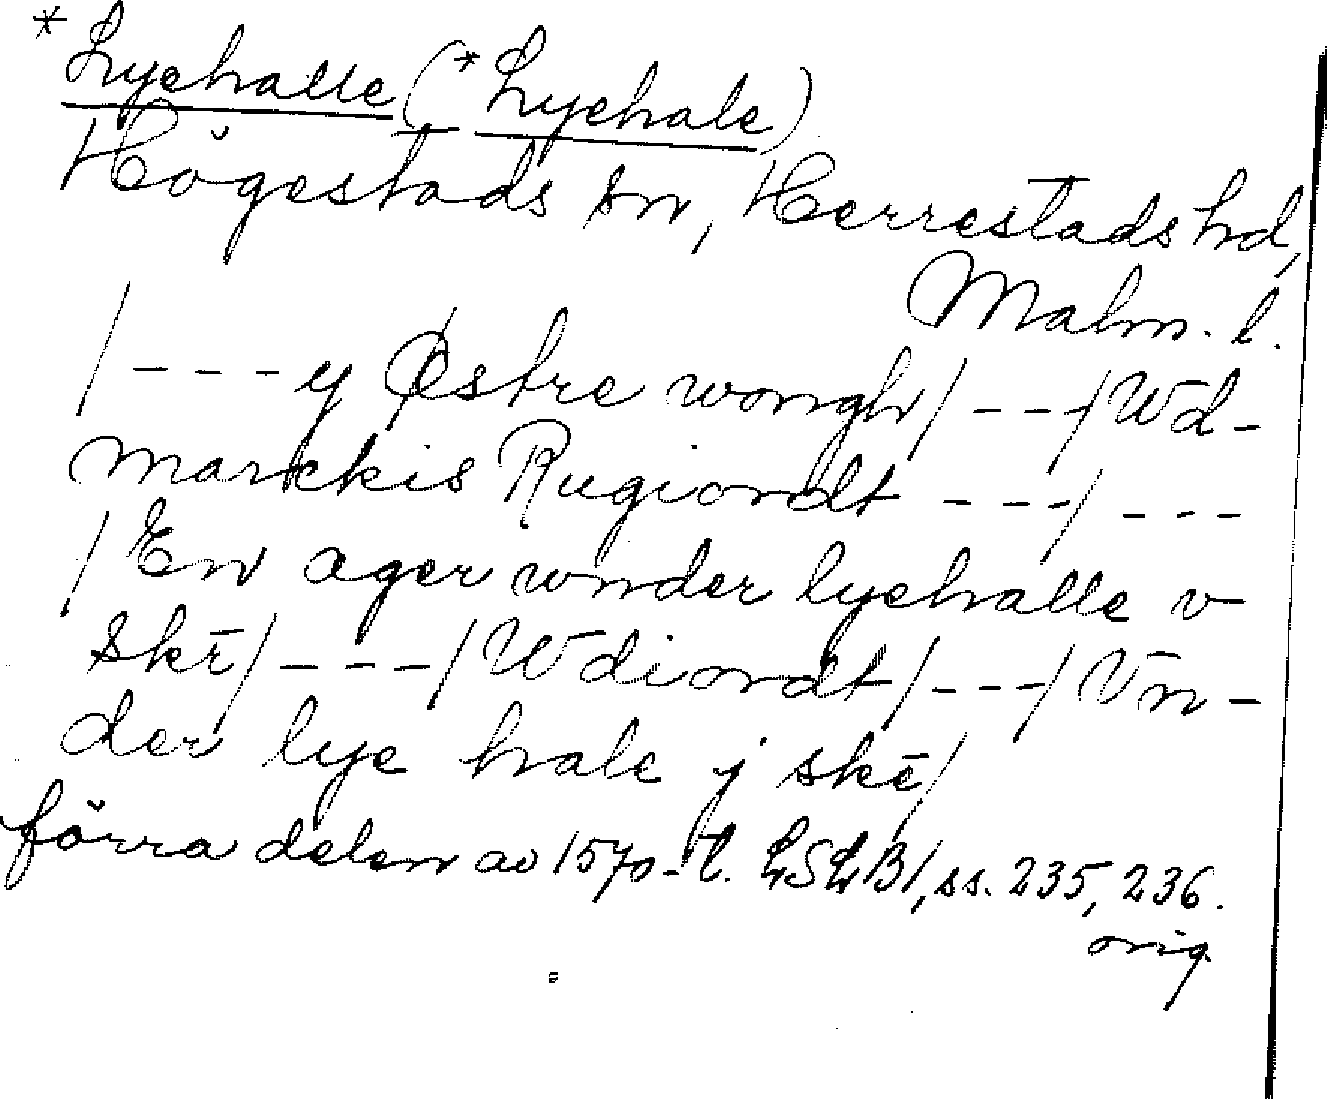 *Lyehalle (*Lyehale)
Högestads sn, Herrestads hd,
Malm. l.
/---y Østre wongh/---/Wd-
marckis Rugiordt ---/---
/En ager wnder lyehalle v
skē/---/Wdiordt/---/Vn-
der lye hale j skē/
förra delen av 1570-t. LSLB1, ss. 235, 236.
orig.